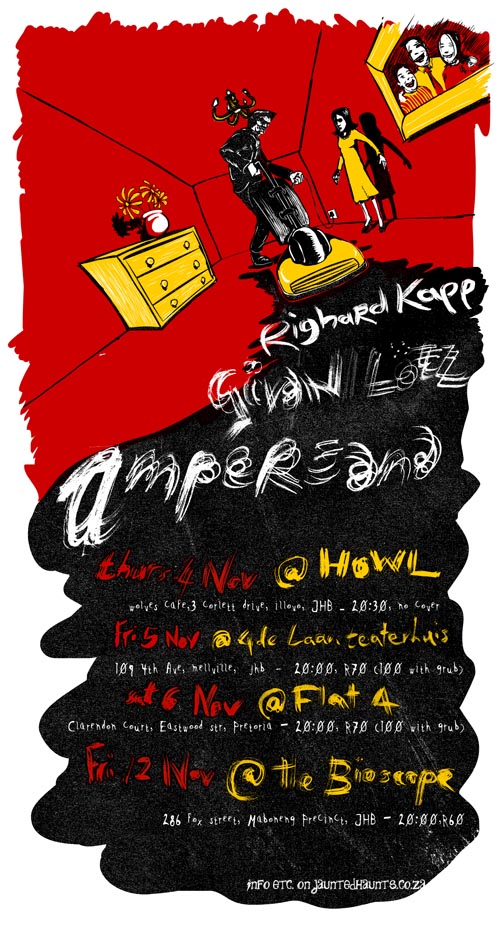 Righard Kapp
Givan Lötz
Ampersand
thurs 4 Nov @ HOWL
wolves Cafe,3 Corlett drive, illovo, JHB - 20:30, no cover
Fri 5 Nov @ 4de Laan teaterhuis
109 4th Ave, mellville, jhb - 20:00, R70 (100 with grub)
sat 6 Nov @ Flat 4
Clarendon Court, Eastwood str, Pretoria - 20:00, R70 (100 with grub)
Fri 12 Nov @ the Bioscope
286 Fox street, Maboneng Precinct, JHB - 20:00,R60
info etc. on jauntedhaunts.co.za